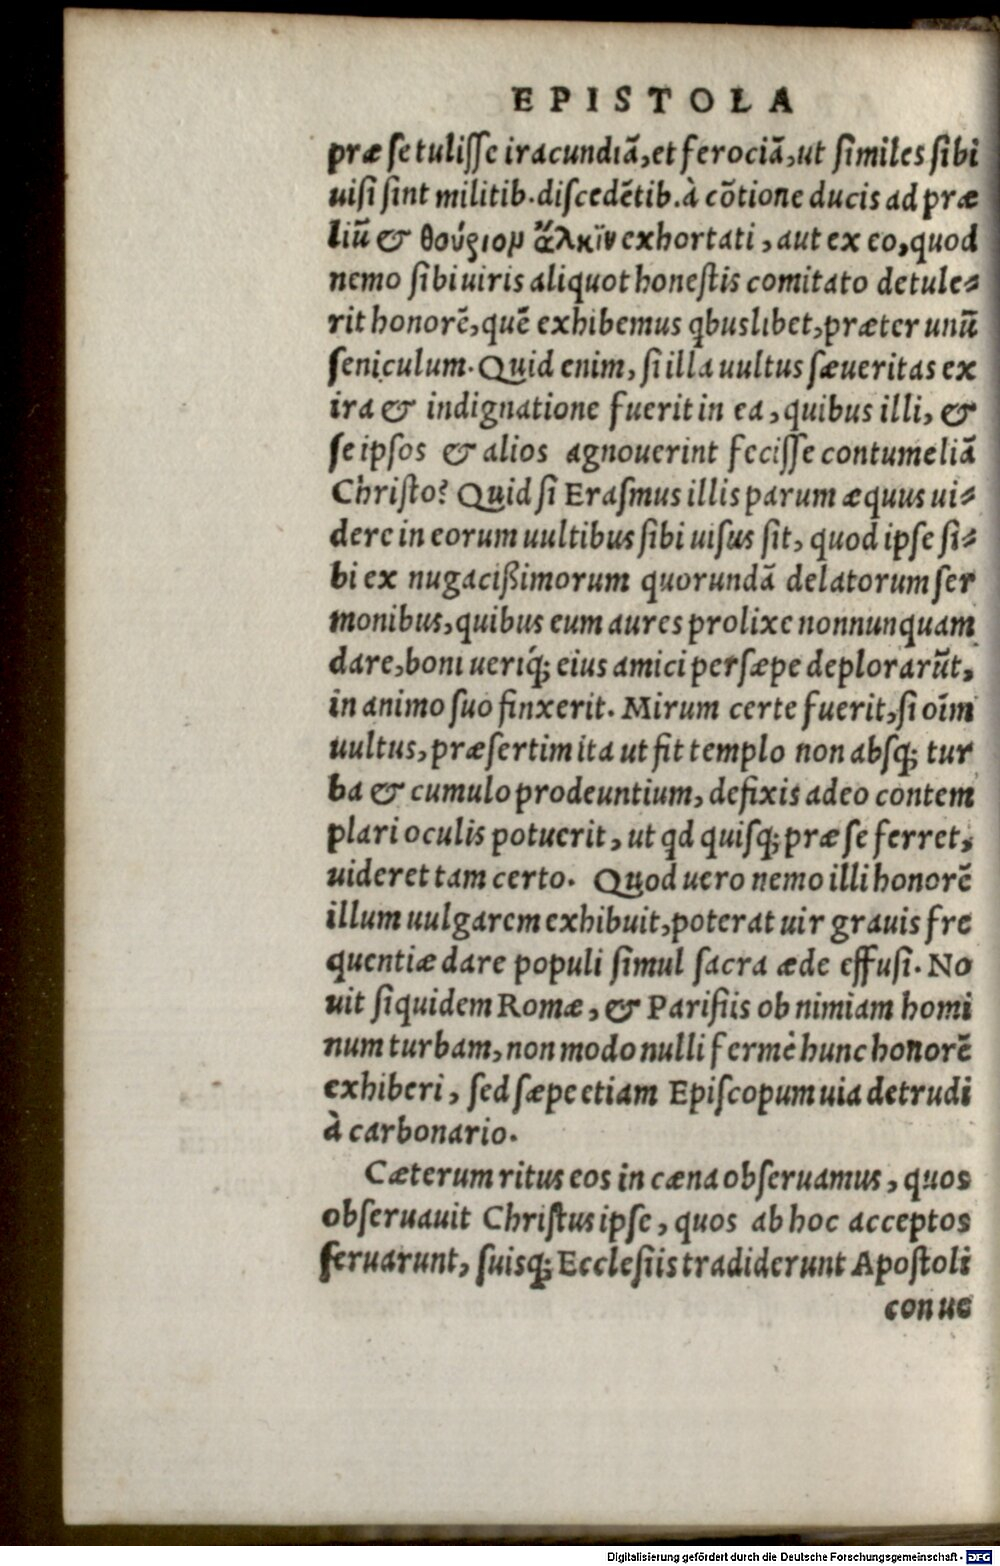 EPISTOLA
præ se tulisse iracundiā, et ferociā, ut similes sibi
uisi sint militib. discedētib. à cōtione ducis ad præ
liū & θούριομ ἄλκἳν exhortati, aut ex eo, quod
nemo sibi uiris aliquot honestis comitato detule⸗
rit honorē, quē exhibemus qbuslibet, præter unū
seniculum. Quid enim, si illa uultus sæueritas ex
ira & indignatione fuerit in ea, quibus illi, &
se ipsos & alios agnouerint fecisse contumeliā
Christo? Quid si Erasmus illis parum æquus ui⸗
dere in eorum uultibus sibi uisus sit, quod ipse si⸗
bi ex nugacißimorum quorundā delatorum ser
monibus, quibus eum aures prolixe nonnunquam
dare, boni ueriq́; eius amici persæpe deplorarūt,
in animo suo finxerit. Mirum certe fuerit, si oīm
uultus, præsertim ita ut fit templo non absq; tur
ba & cumulo prodeuntium, defixis adeo contem
plari oculis potuerit, ut qd quisq; præ se ferret,
uideret tam certo. Quod uero nemo illi honorē
illum uulgarem exhibuit, poterat uir grauis fre
quentiæ dare populi simul sacra æde effusi. No
uit siquidem Romæ, & Parisiis ob nimiam homi
num turbam, non modo nulli fermè hunc honorē
exhiberi, sed sæpe etiam Episcopum uia detrudi
à carbonario.
Cæterum ritus eos in cæna obseruamus, quos
obseruauit Christus ipse, quos ab hoc acceptos
seruarunt, suisq; Ecclesiis tradiderunt Apostoli
conue
Digitalisierung gefördert durch die Deutsche Forschungsgemeinschaft - DFG